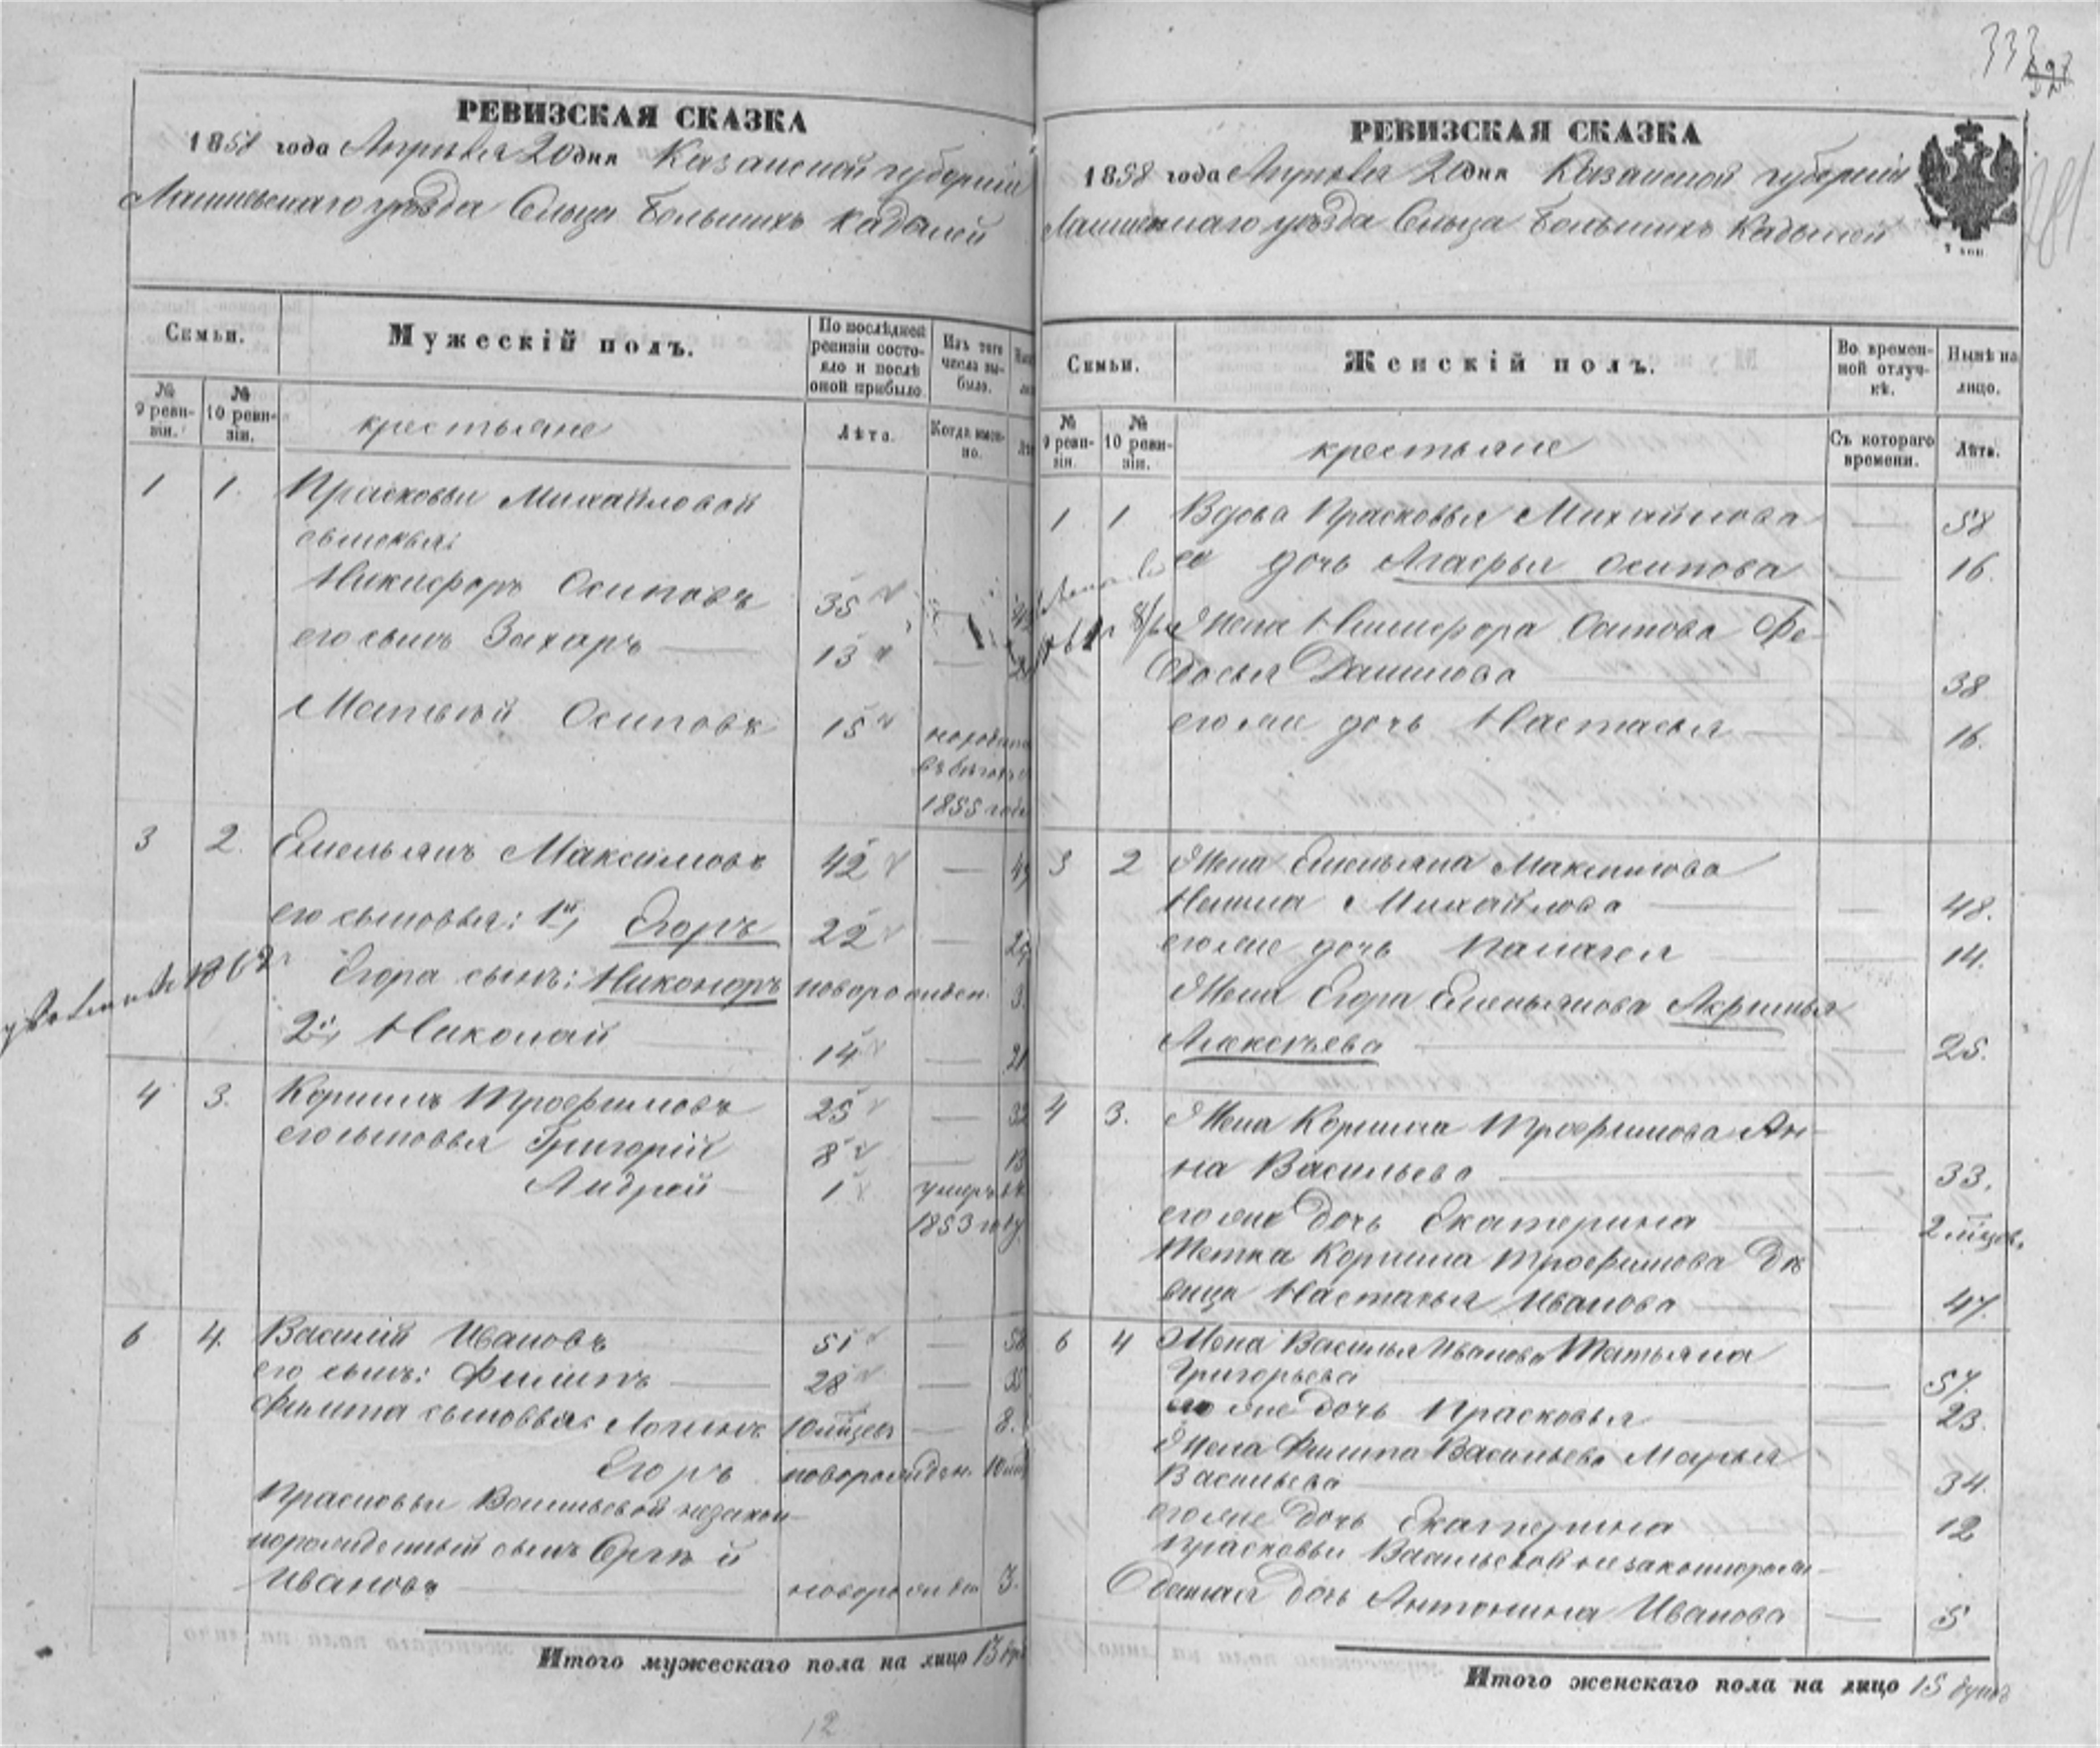 РЕВИЗСКАЯ СКАЗКА
1858 года Апрѣля 20 дня Казанской губерніи
Лаишевскаго уѣзда Сельца Большихъ Кадылей
Семьи.
Мужескій полъ.
По послѣдней ревизіи состояло и послѣ оной прибыло.
Изъ того числа выбыло.
№ 9 ревизіи.
№ 10 ревизіи.
крестьяне
Лѣта.
Когда именно.
1 1. Прасковьи Михайловой
сыновья:
Никифоръ Осиповъ 35
его сынъ Захаръ 13
Матвѣй Осиповъ 15
1855 года
3 2. Емельянъ Максимовъ 42 — 49
его сыновья: 1й, Егоръ 22 — 29
Егора сынъ: Никоноръ новорожден. 3.
2й, Николай 14 — 21
4 3. Корнилъ Трофимовъ 25 — 32
его сыновья Григорій 8 — 15
Андрей 1 умеръ въ
1853 году
6 4. Василій Ивановъ 51 — 58
его сынъ: Филипъ 28 — 35
Филипа сыновья: Логинъ 10 мѣцевъ — 8.
Егоръ новорожден. 10 мѣс
Прасковьи Васильевой незакон-
норожденный сынъ Сергѣй
Ивановъ новорожден 3.
Итого мужескаго пола на лицо 13 душ
12
333
РЕВИЗСКАЯ СКАЗКА
1858 года Апрѣля 20 дня Казанской губерніи
Лаишевскаго уѣзда Сельца Большихъ Кадылей
Семьи.
Женскій полъ.
Во временной отлучкѣ.
Нынѣ на лицо.
№ 9 ревизіи.
№ 10 ревизіи.
крестьяне
Съ котораго времени.
Лѣта.
1 1 Вдова Прасковья Михайлова — 58
ея дочь Агафья Осипова — 16.
Жена Никифора Осипова Фе-
досья Данилова 38
его же дочь Настасья 16.
3 2 Жена Емельяна Максимова
Михайлова — 48.
его же дочь Палагея — 14.
Жена Егора Емельянова
Алексѣева — 25.
4 3. Жена Корнила Трофимова Ан-
на Васильева — 33.
его же дочь Екатерина — 2 мѣцев.
Тетка Корнила Трофимова Дѣ-
вица Настасья Иванова — 47.
6 4 Жена Василья Иванова Татьяна
Григорьева — 57.
его же дочь Прасковья — 23.
Жена Филипа Васильева Марья
Васильева — 34.
его же дочь Екатерина — 12
Прасковьи Васильевой незаконнорож-
денная дочь Антонина Иванова — 5
Итого женскаго пола на лицо 15 душъ